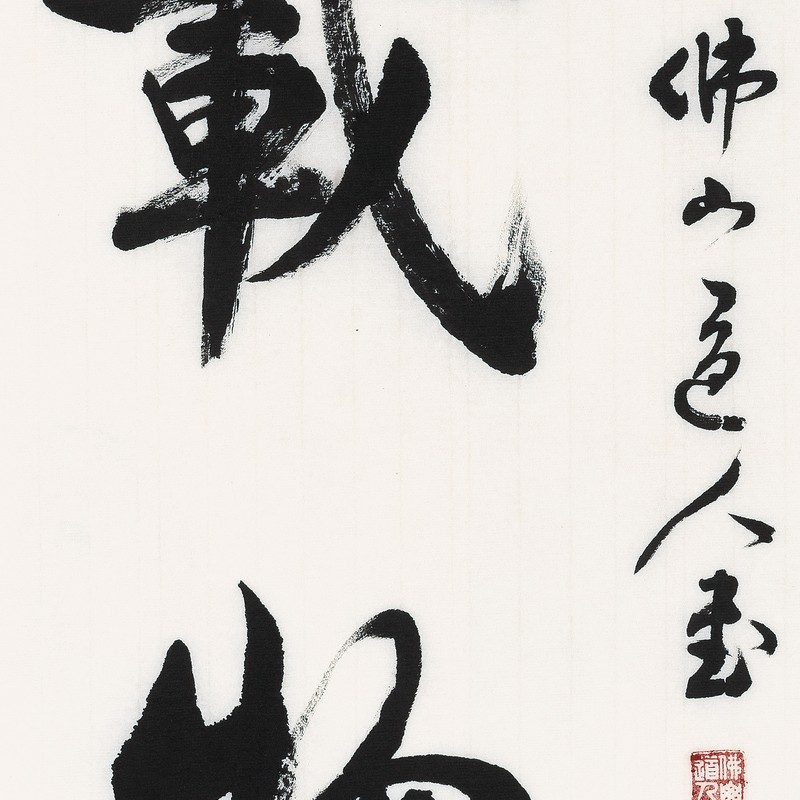 載物
佛山道人書